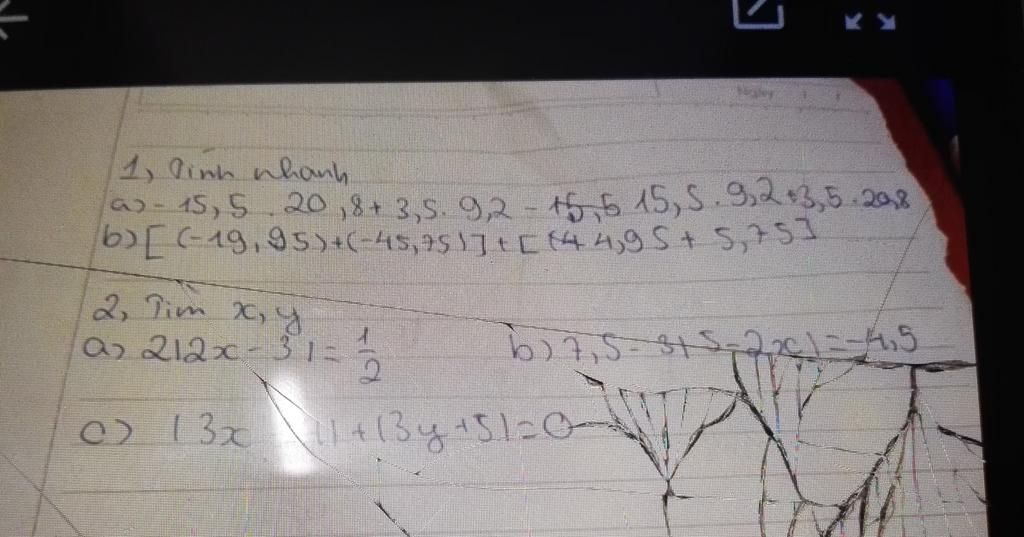 1, Tính nhanh
a) - 15,5 . 20,8 + 3,5 . 9,2 - 15,5 . 9,2 + 3,5 . 20,8
b) [(-19,95) + (-45,75)] + [44,95 + 5,75]
2, Tìm x, y
a) 2|2x - 3| = 1/2
b) 7,5 - 3|5 - 2x| = -4,5
c) |3x 1| + |3y + 5| = 0